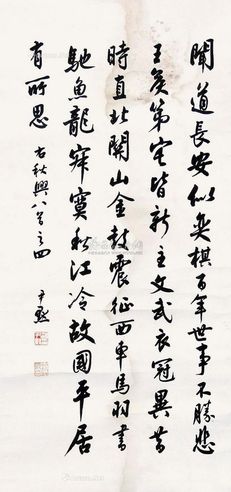 聞道長安似奕棋百年世事不勝悲
王矦第宅皆新主文武衣冠異昔
時直北關山金鼓震征西車馬羽書
馳魚龍寂寞秋江冷故國平居
有所思 右秋興八首之四 尹默